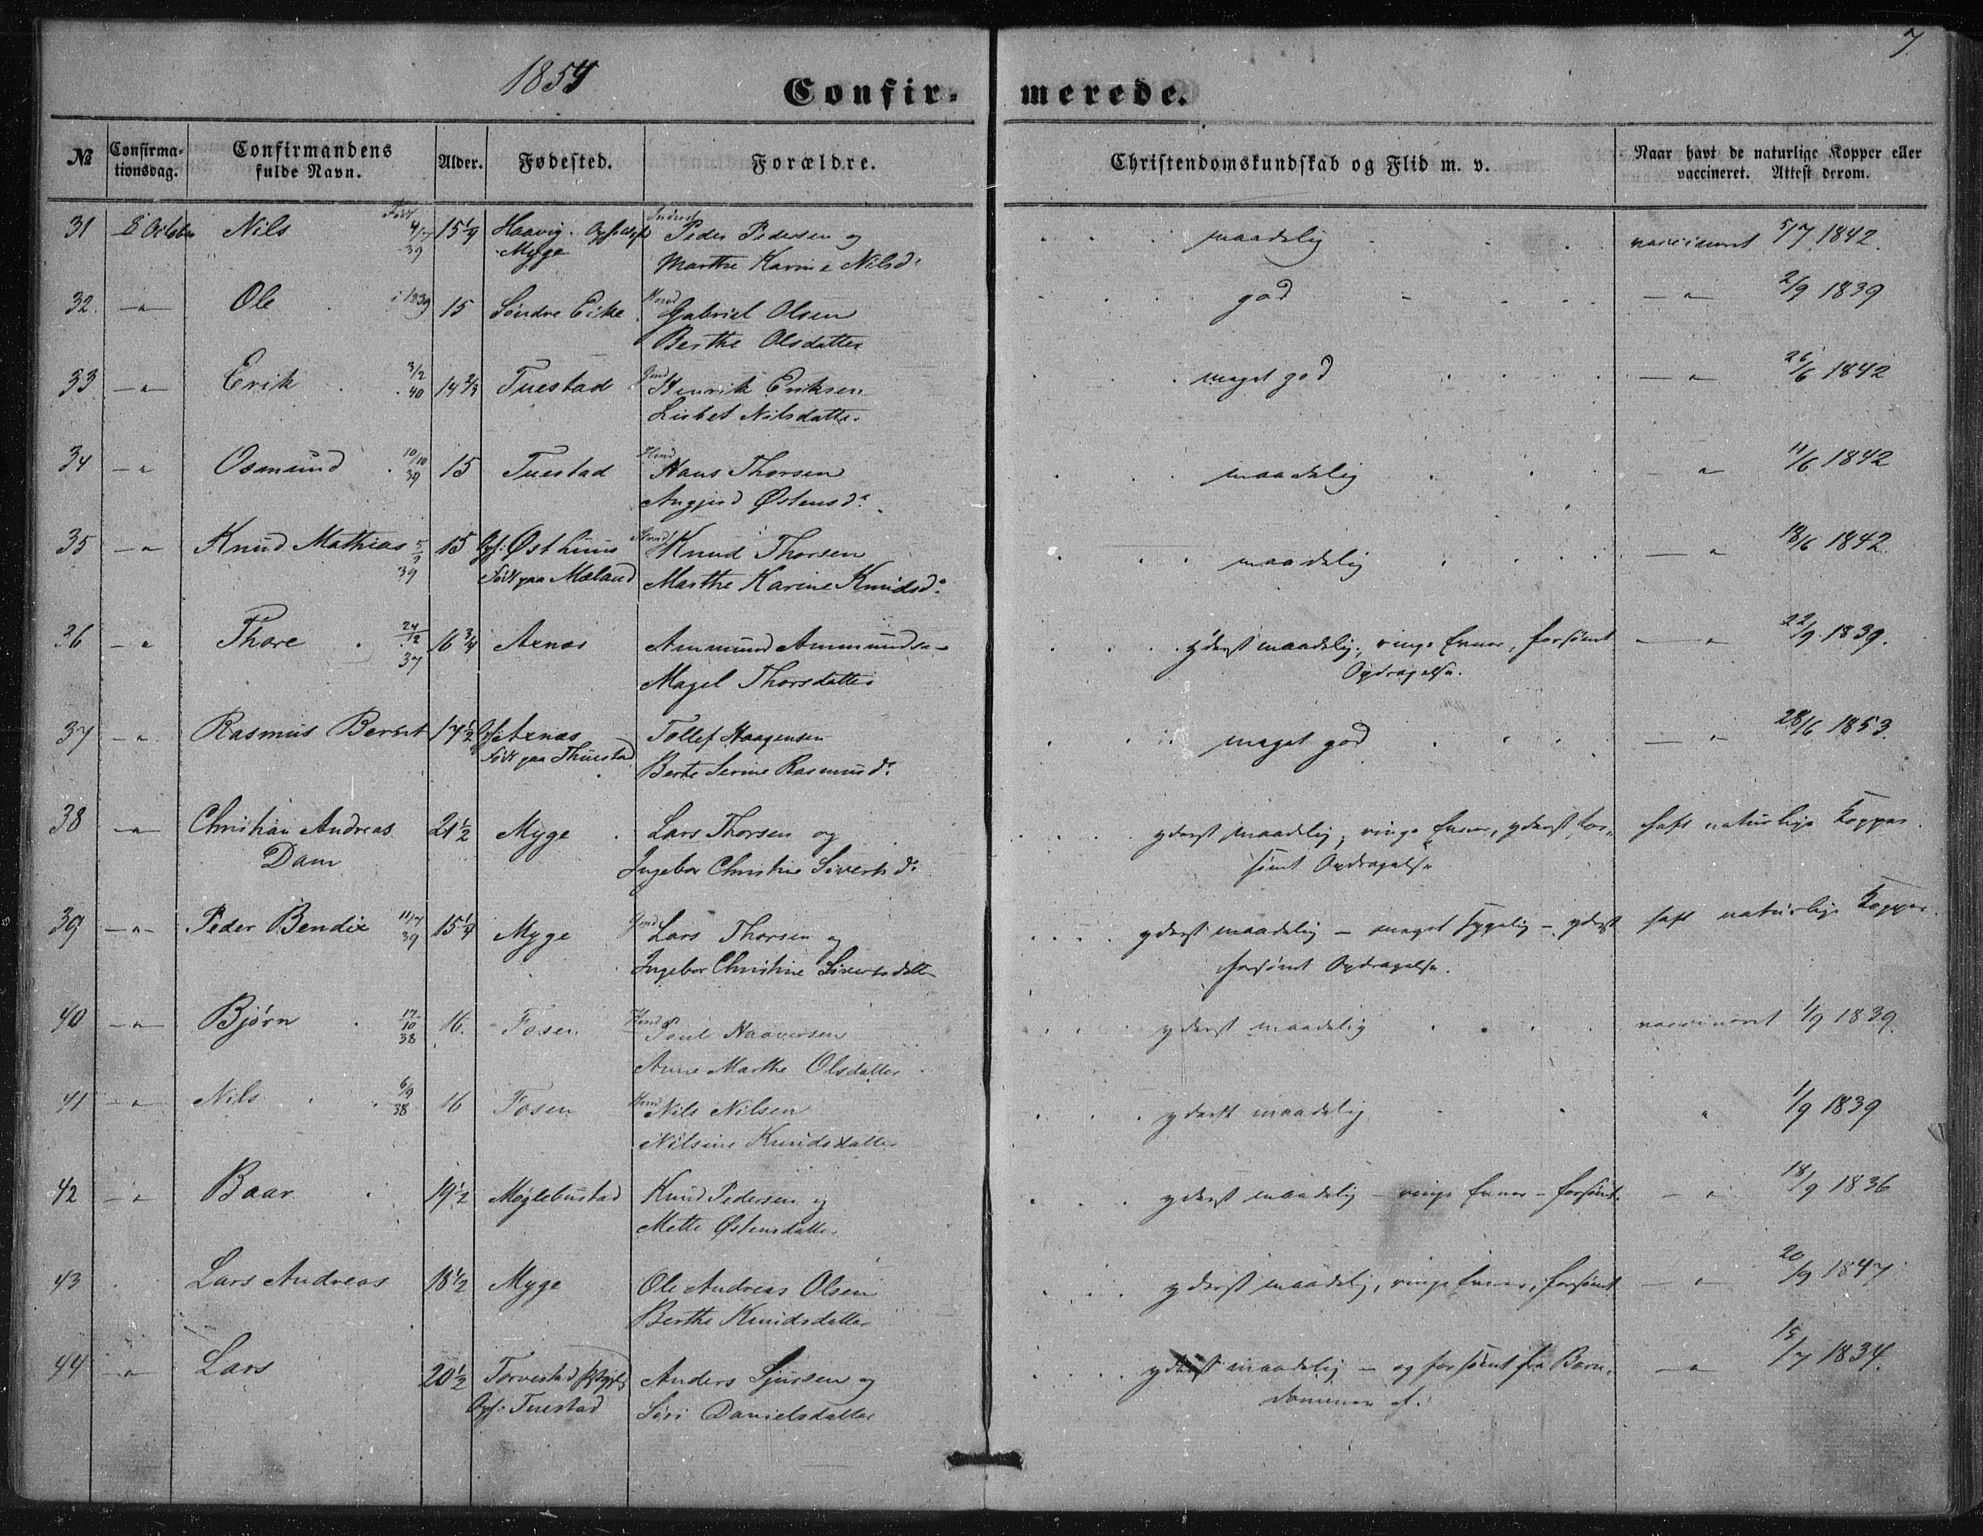 7
1854
Confirmerede.
№ Confirmationsdag. Confirmandens fulde Navn. Alder. Fødested. Forældre. Christendomskundskab og Flid m. v. Naar havt de naturlige Kopper eller vaccineret. Attest derom.
31 8 October Nils Født 4/7 39 15 1/9 Haavig. Myge Inderst Peder Pedersen og maadelig vaccineret 5/7 1842.
Marthe Karine Nilsd:
32. -"- Ole i 1839 15 Søndre Eike Gabriel Olsen god -"- 2/9 1839
Berthe Olsdatter
33 -"- Erik 3/2 40 14 2/3 Tuestad Gmd Henrik Eriksen meget god -"- 26/6 1842
Lisbet Nilsdatter
34 -"- Osmund 10/10 39 15 Tuestad Hmd Hans Thorsen maadelig -"- 11/6 1842
Østensd:
35 -"- Knud Mathias 5/9 39 15 Opf: Østhuus Knud Thorsen maadelig -"- 18/6 1842
Født paa Mæland Marthe Karine Knudsd:
36 -"- Thore 24/12 37 16 3/4 Axnæs Ammund Ammundsen yderst maadelig, ringe Evner, forsømt -"- 22/9 1839.
Magel Thorsdatter Opdragelse.
37 -"- Rasmus Bernt 17 1/2 Opf: Axnæs Tollef Haagensen meget god -"- 28/6 1853.
Født paa Thuestad Berte Serine Rasmusd:
38 -"- Christian Andreas 21 1/2 Myge Lars Thorsen og yderst maadelig, ringe Evner, yderst for- haft naturlige Kopper.
Dam Ingebor Christine Sivertsd: sømt Opdragelse
39 -"- Peder Bendix 11/7 39 15 1/4 Myge Gmd Lars Thorsen og yderst maadelig - meget sygelig - yderst haft naturlige Kopper.
Ingebor Christine Sivertsdatter forsømt Opdragelse.
40 -"- Bjørn 17/10 38 16. Fosen Hmd Poul Haaversen yderst maadelig vaccineret 1/9 1839.
Anne Marthe Olsdatter
41 -"- Nils 6/9 38 16 Fosen Hmd Nils Nilsen yderst maadelig " 1/9 1839
Nilsine Knudsdatter
42 -"- Baar 19 1/2 Møglebustad Knud Pedersen og yderst maadelig - ringe Evner - forsømt. -"- 18/9 1836
Mette Østensdatter
43 Lars Andreas 18 1/2 Myge Ole Andreas Olsen yderst maadelig, ringe Evner, forsømt -"- 20/9 1847.
Berthe Knudsdatter
44 -"- Lars 20 1/2 Torvestad Anders Sjursen og yderst maadelig - og forsømt fra Barn- -"- 15/7 1834.
Opf: Tuestad Siri Danielsdatter dommen af.